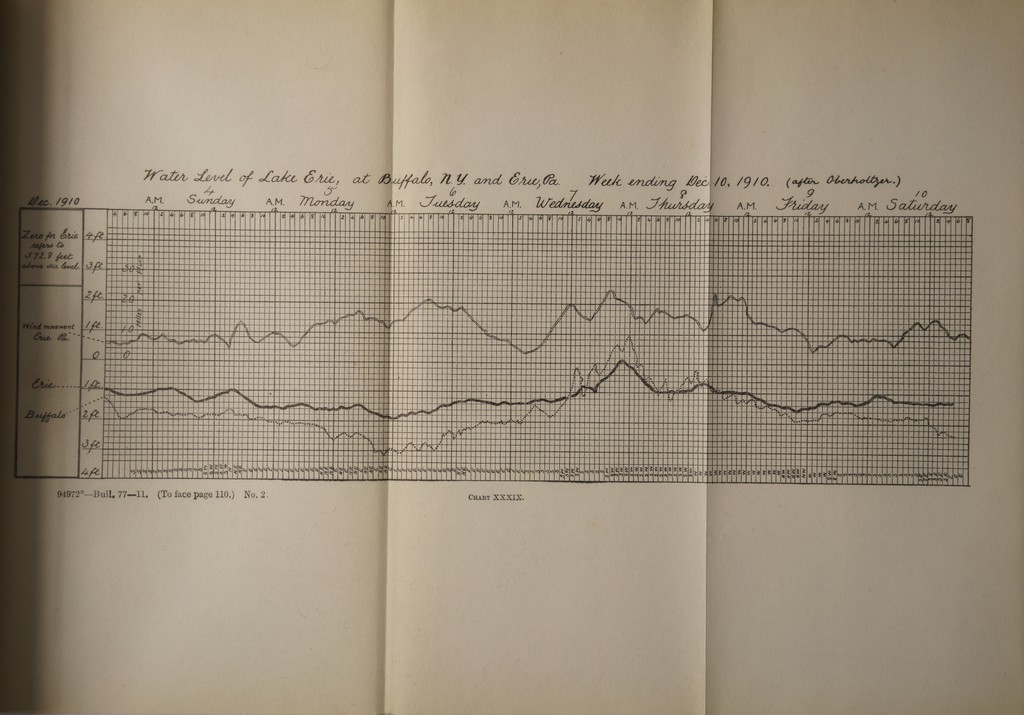 Water Level of Lake Erie, at Buffalo, N.Y. and Erie, Pa. Week ending Dec. 10, 1910. (after Oberholtzer.)
4 5 6 7 8 9 10
Dec. 1910 A.M. Sunday A.M. Monday A.M. Tuesday A.M. Wednesday A.M. Thursday A.M. Friday A.M. Saturday
Zero for Erie
refers to
572.8 feet
above sea level.
4 ft.
3 ft. 30
2 ft. 20
1 ft. 10
0 0
Miles per Hour
Wind movement
Erie Pa.
Erie 1 ft.
Buffalo 2 ft.
3 ft.
4 ft.
94972°—Bull. 77—11. (To face page 110.) No. 2.
CHART XXXIX.